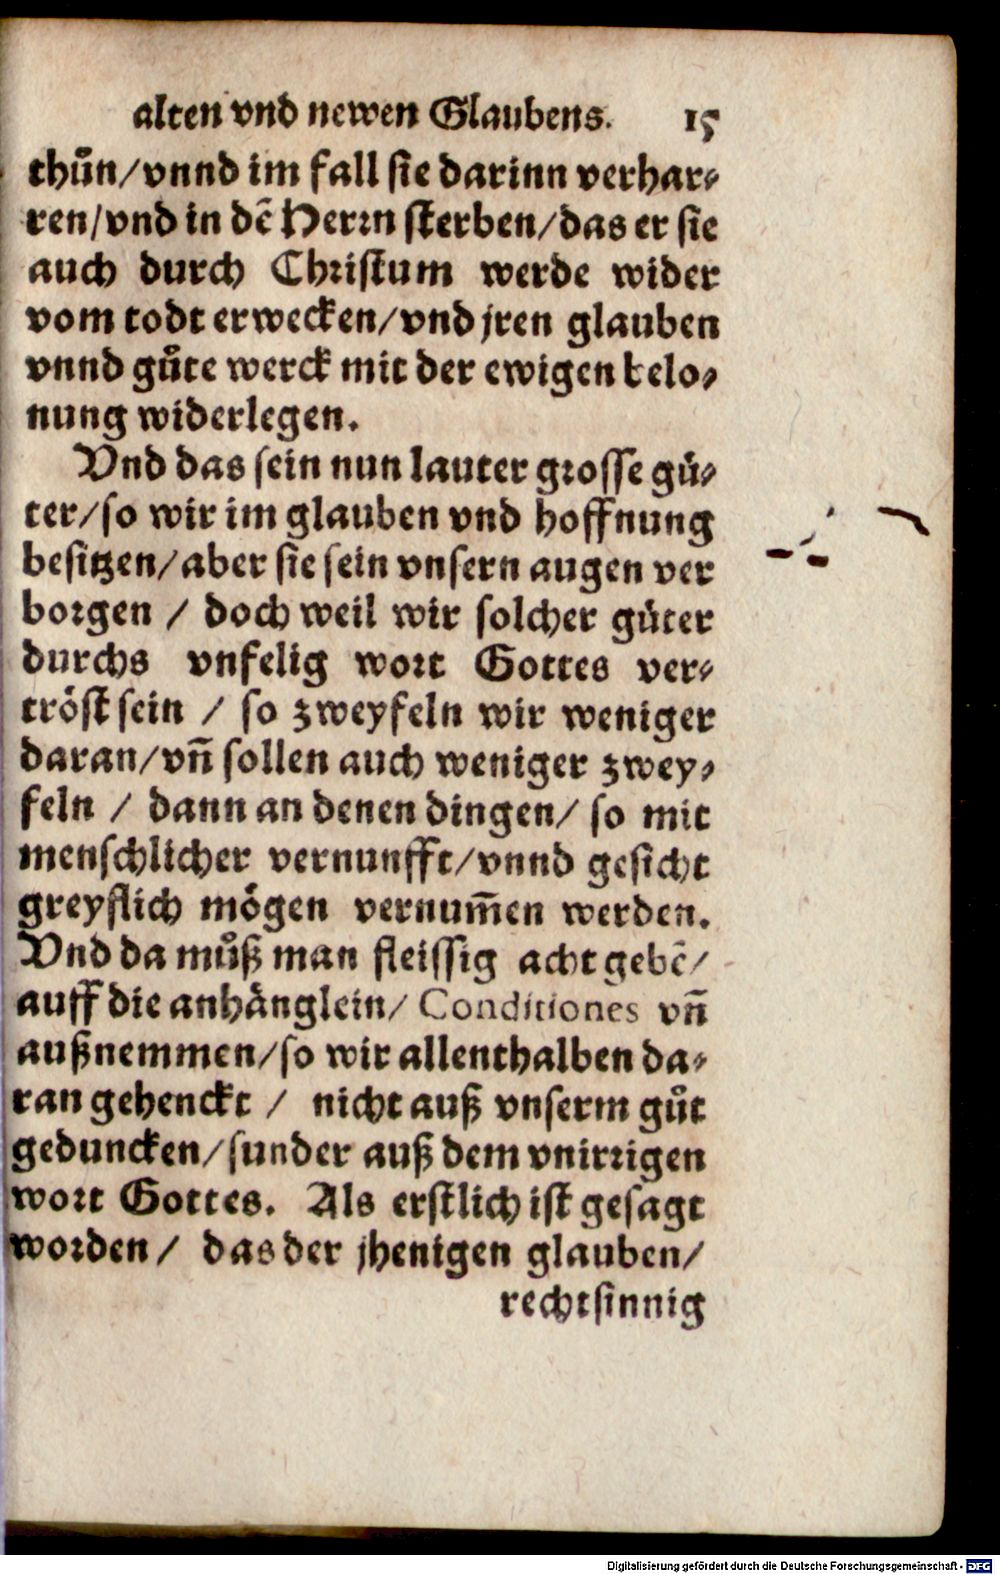 alten vnd newen Glaubens. 15
thůn/vnnd im fall sie darinn verhar⸗
ren/vnd in dẽ Herrn sterben/das er sie
auch durch Christum werde wider
vom todt erwecken/vnd jren glauben
vnnd gůte werck mit der ewigen belo⸗
nung widerlegen.
Vnd das sein nun lauter grosse gü⸗
ter/so wir im glauben vnd hoffnung
besitzen/aber sie sein vnsern augen ver
borgen / doch weil wir solcher güter
durchs vnfelig wort Gottes ver⸗
tröst sein / so zweyfeln wir weniger
daran/vñ sollen auch weniger zwey⸗
feln / dann an denen dingen/ so mit
menschlicher vernunfft/vnnd gesicht
greyflich mögen vernum̃en werden.
Vnd da můß man fleissig acht gebẽ/
auff die anhänglein/ Conditiones vñ
außnemmen/so wir allenthalben da⸗
ran gehenckt / nicht auß vnserm gůt
geduncken/sunder auß dem vnirrigen
wort Gottes. Als erstlich ist gesagt
worden / das der jhenigen glauben/
rechtsinnig
Digitalisierung gefördert durch die Deutsche Forschungsgemeinschaft - DFG